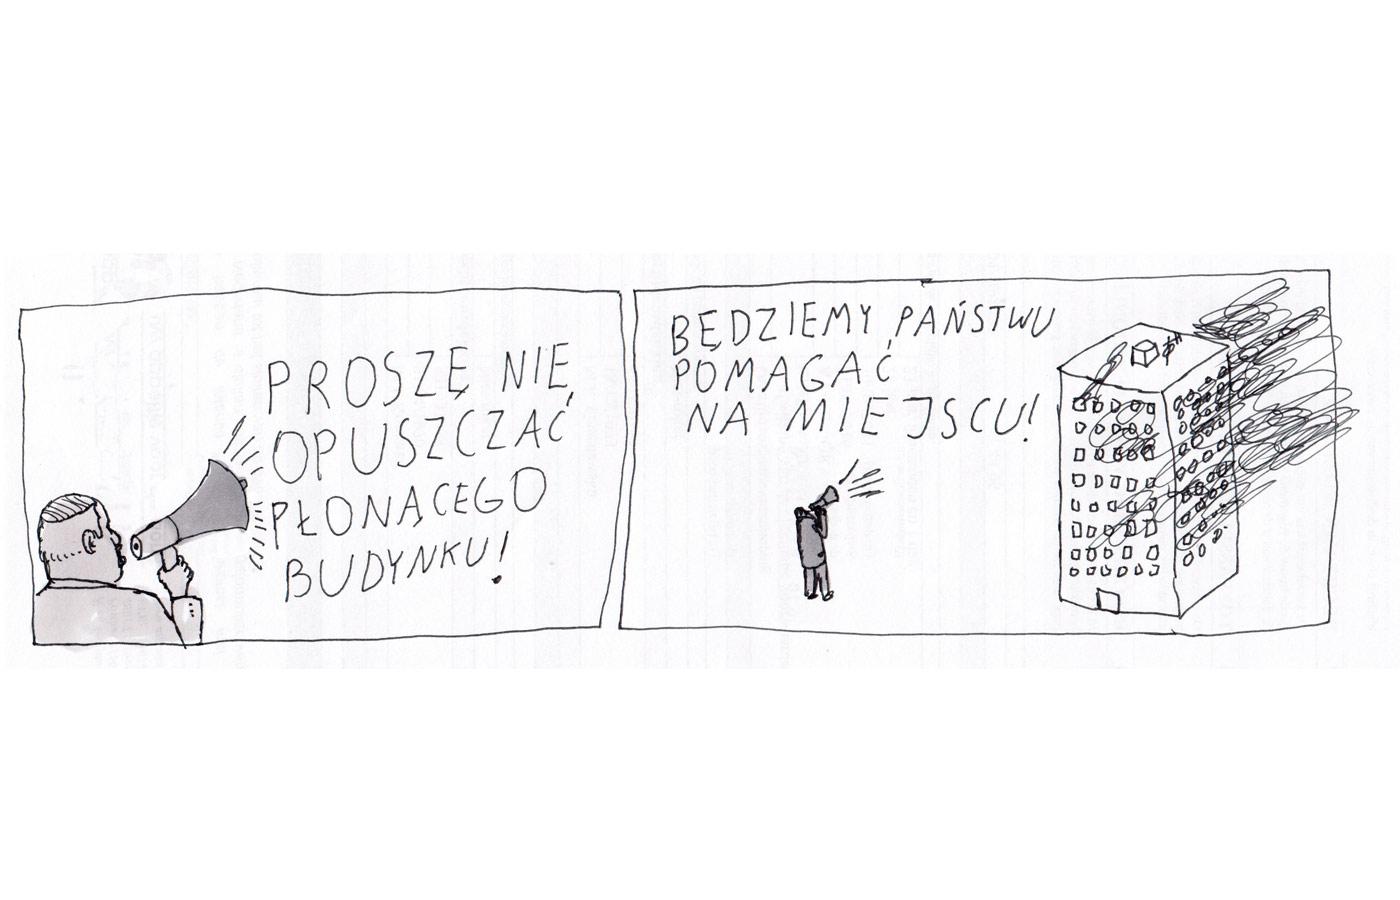 PROSZĘ NIE
OPUSZCZAĆ
PŁONĄCEGO
BUDYNKU!
BĘDZIEMY PAŃSTWU
POMAGAĆ
NA MIEJSCU!